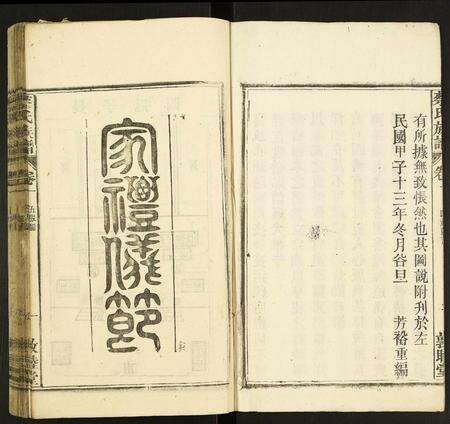 蔡氏族譜
卷
有所據無致悵然也其圖說附刊於左
民國甲子十三年冬月谷旦
芳裕重編
敦睦堂
家禮儀節